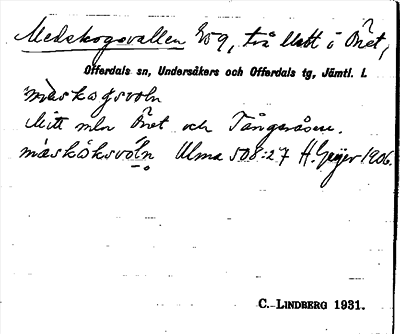 Medskogsvallen 859, två utt i Önet,
Offerdals sn, Undersåkers och Offerdals tg, Jämtl. l.
mäskogsvoln
Mitt mln Önet och Tångeråsen.
mäskòksvòln Ulma 508:27 H. Geijer 1906.
C. LINDBERG 1931.